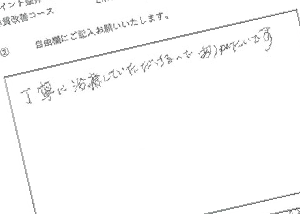 質改善コース
③ 自由欄にご記入お願いいたします。
丁寧に治療していただけるので ありがたいです